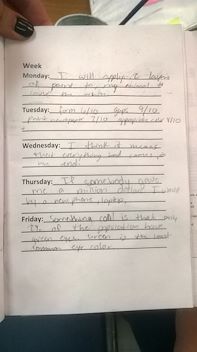 Week
Monday: I will apply 2 layers
of paint to my animal to
Tuesday: form 6/10 Gaps 9/10
7/10
Wednesday: I think it means
that everything bad comes to
an end
Thursday: If somebody gave
me a million dollars I would
buy a new phone, laptop,
Friday: Something cool is that only
2% of the population have
green eyes. Green is the least
common eye color